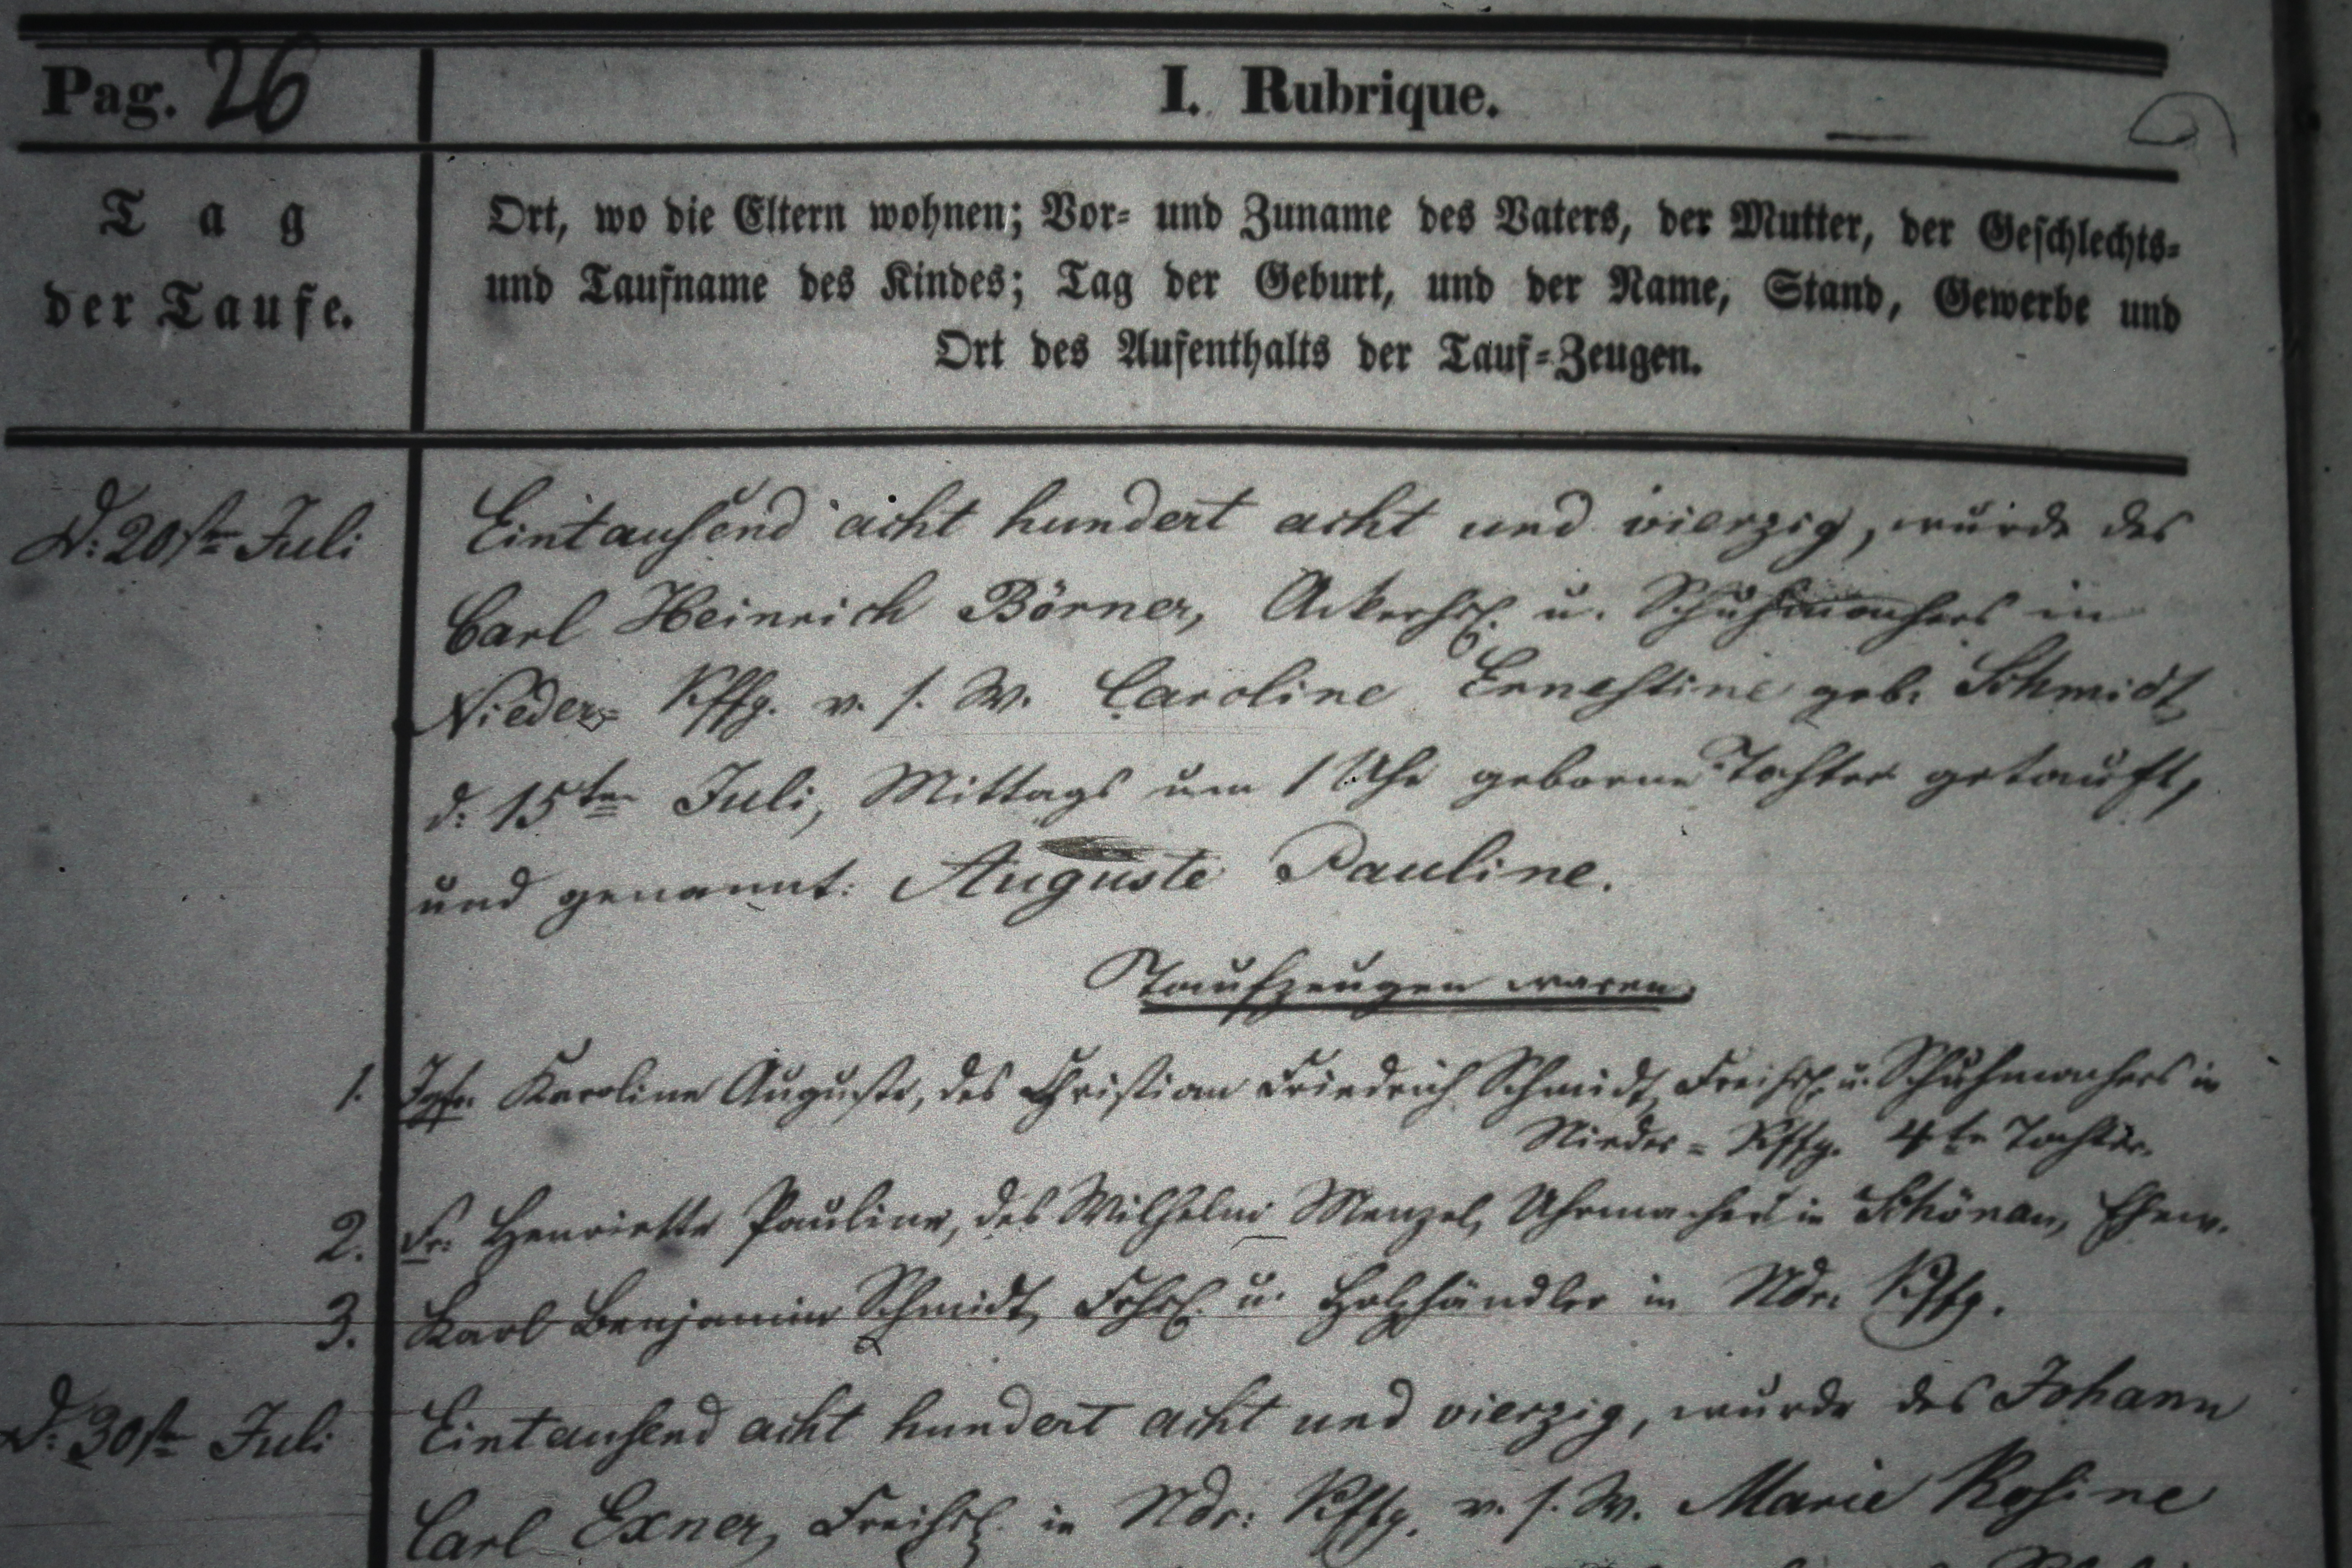 Pag. 26
I. Rubrique.
Tag
der Taufe.
Ort, wo die Eltern wohnen; Vor- und Zuname des Vaters, der Mutter, der Geschlechts-
und Taufname des Kindes; Tag der Geburt, und der Name, Stand, Gewerbe und
Ort des Aufenthalts der Tauf-Zeugen.
D. 20ste Juli
Eintausend acht hundert acht und vierzig, wurde des
Carl Heinrich Börner, Ackerhsl. u. Schuhmachers in
Nieder- Kffg. v. s. W. Caroline Ernestine geb. Schmidt,
d. 15ten Juli, Mittags um 1 Uhr geborne Tochter getauft,
und genannt: Auguste Pauline.
Taufzeugen waren,
1. Jgfr. Karoline Auguste, des Christian Friedrich Schmidt, Freihsl. u. Schuhmachers in
Nieder- Kffg. 4te Tochter.
2. Fr. Henriette Pauline, des Wilhelm Menzel, Uhrmacher in Schönau, Ehew.
3. Karl Benjamin Schmidt, Frhsl. u. Holzhändler in Ndr. Kffg.
D. 30ste Juli
Eintausend acht hundert acht und vierzig, wurde des Johann
Carl Exner, Freihsl. in Ndr: Kffg. v. s. W. Marie Rosine